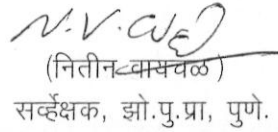 N. V. 
(नितीन वायचळ)
सर्व्हेक्षक, झो.पु.प्रा, पुणे.